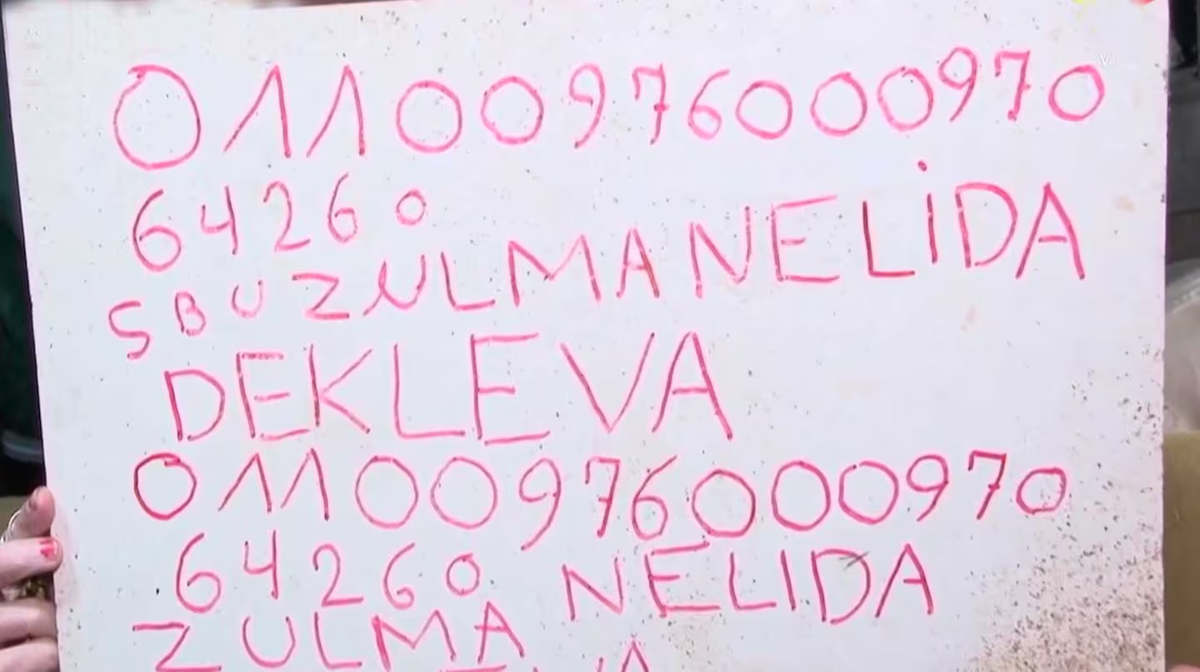 01100976000970
64260
SBU ZULMA NELiDA
DEKLEVA
01100976000970
64260 NELIDA
ZULMA